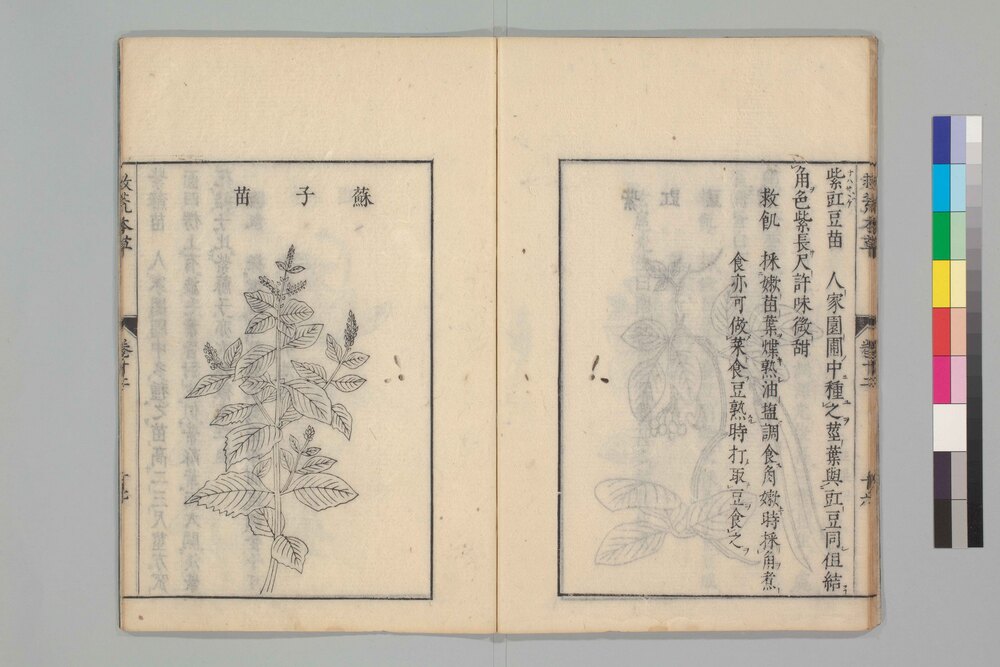 紫豇豆苗 人家園圃中種之莖葉與豇豆同但結
角色紫長尺許味微甜
救飢 採嫩苗葉煠熟油塩調食角嫩時採角煮
食亦可做菜食豆熟時打取豆食之
蘇子苗
救荒本草
卷十二